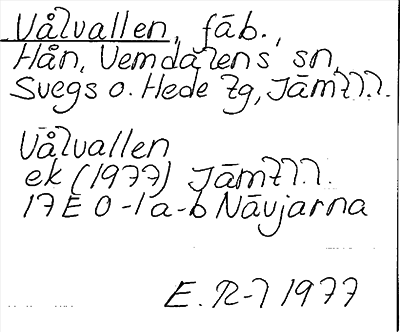 Vålvallen, fäb.,
Hån, Vemdalens sn,
Svegs o. Hede tg, Jämtl.
Vålvallen
ek (1977) Jämtl.
17E 0-1a-b Nävjarna
E. R-7 1977